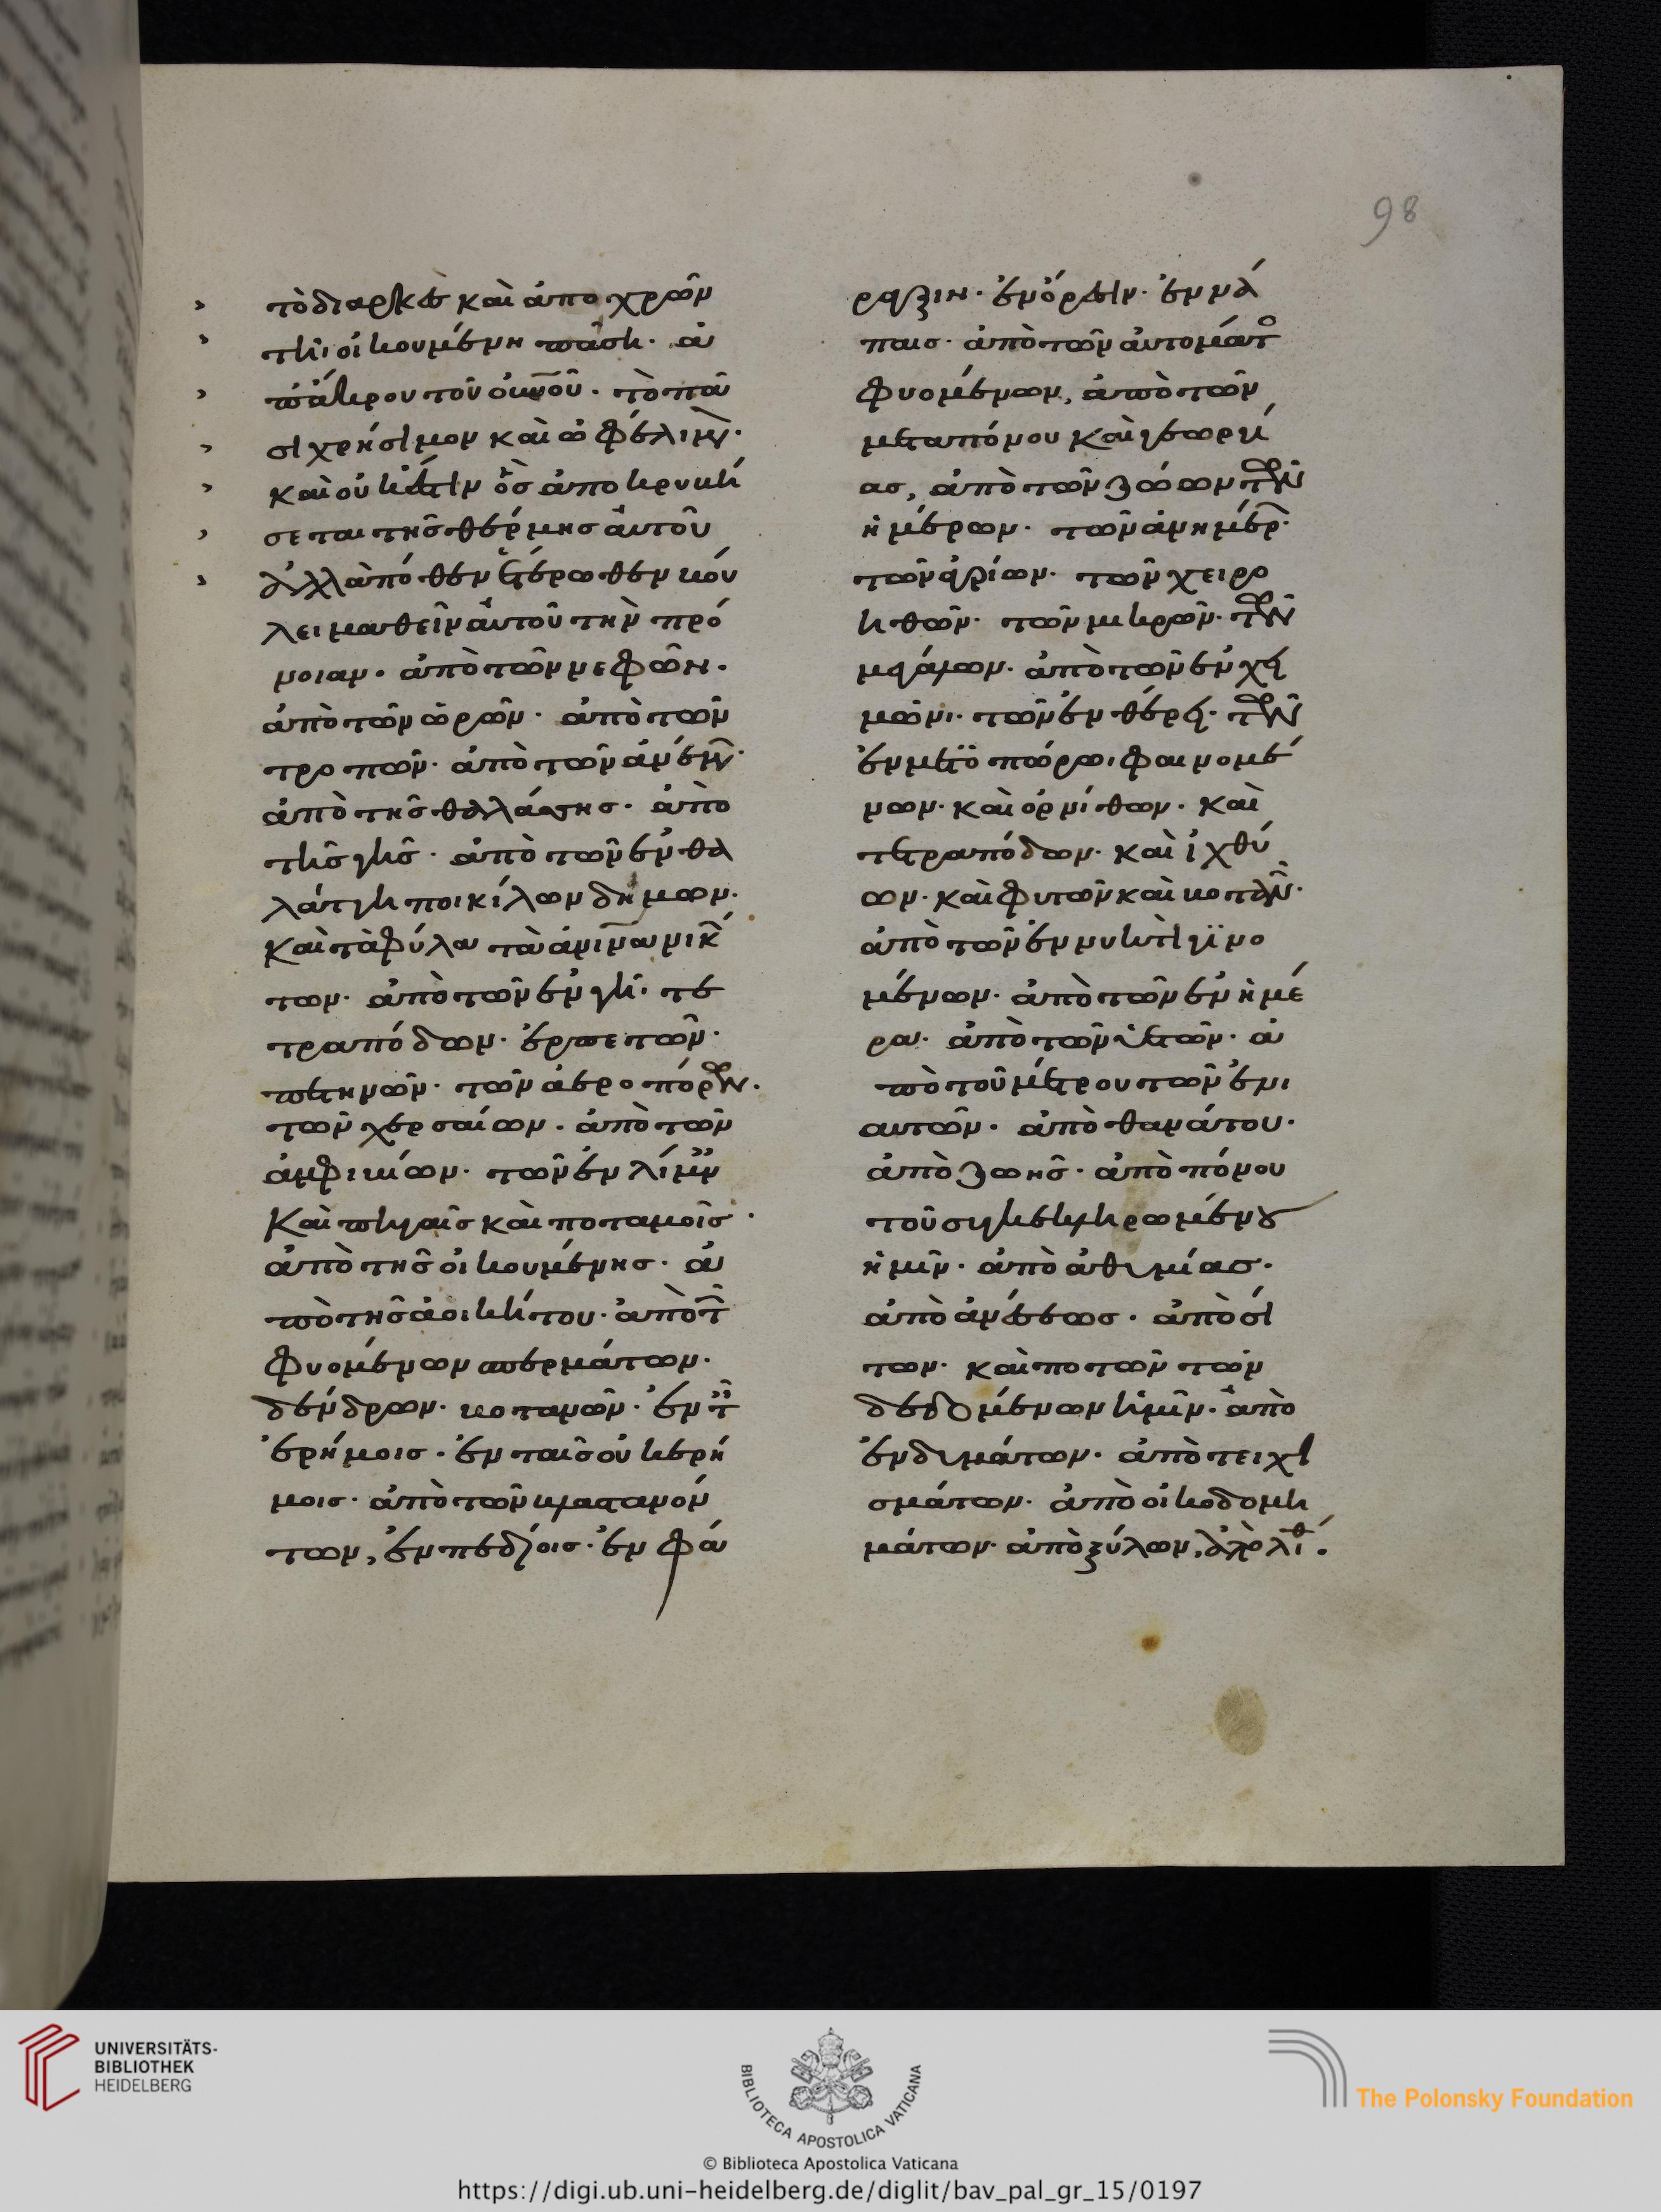 98
τὸ διαρκὲς καὶ ἀποχρῶν
τῆι οἰκουμένη πάση. ἀ
π' ἄκρου τοῦ οὐνοῦ. τὸ πᾶ
σι χρήσιμον καὶ ὠφέλιμον.
καὶ οὐκ ἔστιν ὃς ἀποκρυβή
σεται τῆς θέρμης αὐτοῦ
ἀλλαχόθεν ἑτέρωθεν βού
λει μαθεῖν αὐτοῦ τὴν πρό
νοιαν. ἀπὸ τῶν νεφῶν.
ἀπὸ τῶν ὡρῶν. ἀπὸ τῶν
τροπῶν. ἀπὸ τῶν ἀνέμων.
ἀπὸ τῆς θαλάσσης. ἀπὸ
τῆς γῆς. ἀπὸ τῶν ἐν θα
λάττη ποικίλων δήμων.
καὶ τὰ φύλα
των. ἀπὸ τῶν ἐν γῆ. τε
τραπόδων. ἑρπετῶν.
πτηνῶν. τῶν ἀεροπόρων.
τῶν χερσαίων. ἀπὸ τῶν
ἀμφιβίων. τῶν ἐν λίμν
καὶ πηγαῖς καὶ ποταμοῖς.
ἀπὸ τῆς οἰκουμένης. ἀ
πὸ τῆς ἀοικήτου. ἀπὸ τ
φυομένων σπερμάτων.
δένδρων. βοτανῶν. ἐν τ
ἐρήμοις. ἐν ταῖς οὐκ ἐρή
μοις. ἀπὸ τῶν βλαστανόν
των, ἐν πεδίοις. ἐν φά
ραγξιν. ἐν ὄρεσιν. ἐν νά
παις. ἀπὸ τῶν αὐτομάτ
φυομένων, ἀπὸ τῶν
μετὰ πόνου καὶ γεωργί
ας, ἀπὸ τῶν ζώων τῶν
ἡμέρων. τῶν ἀνημέρ
τῶν ἀγρίων. τῶν χειρο
ηθῶν. τῶν μικρῶν. τῶν
μεγάλων. ἀπὸ τῶν ἐν χει
μῶνι. τῶν ἐν θέρει. τῶν
ἐν μετοπώρωι φαινομέ
νων. καὶ ὀρνίθων. καὶ
τετραπόδων. καὶ ἰχθύ
ων. καὶ φυτῶν καὶ βοτανῶν.
ἀπὸ τῶν ἐν νυκτὶ γινο
μένων. ἀπὸ τῶν ἐν ἡμέ
ρα. ἀπὸ τῶν ὑετῶν. ἀ
πὸ τοῦ μέτρου τῶν ἐνι
αυτῶν. ἀπὸ θανάτου.
ἀπὸ ζωῆς. ἀπὸ πόνου
τοῦ συγκεκληρωμένου
ἡμῖν. ἀπὸ ἀθυμίας.
ἀπὸ ἀνέσεως. ἀπὸ σί
των. καὶ ποτῶν τῶν
δεδομένων ἡμῖν. ἀπὸ
ἐνδυμάτων. ἀπὸ τειχι
σμάτων. ἀπὸ οἰκοδομη
μάτων. ἀπὸ ξύλων, ἀπὸ λίθ.
UNIVERSITÄTS-
BIBLIOTHEK
HEIDELBERG
BIBLIOTECA APOSTOLICA VATICANA
The Polonsky Foundation
© Biblioteca Apostolica Vaticana
https://digi.ub.uni-heidelberg.de/diglit/bav_pal_gr_15/0197